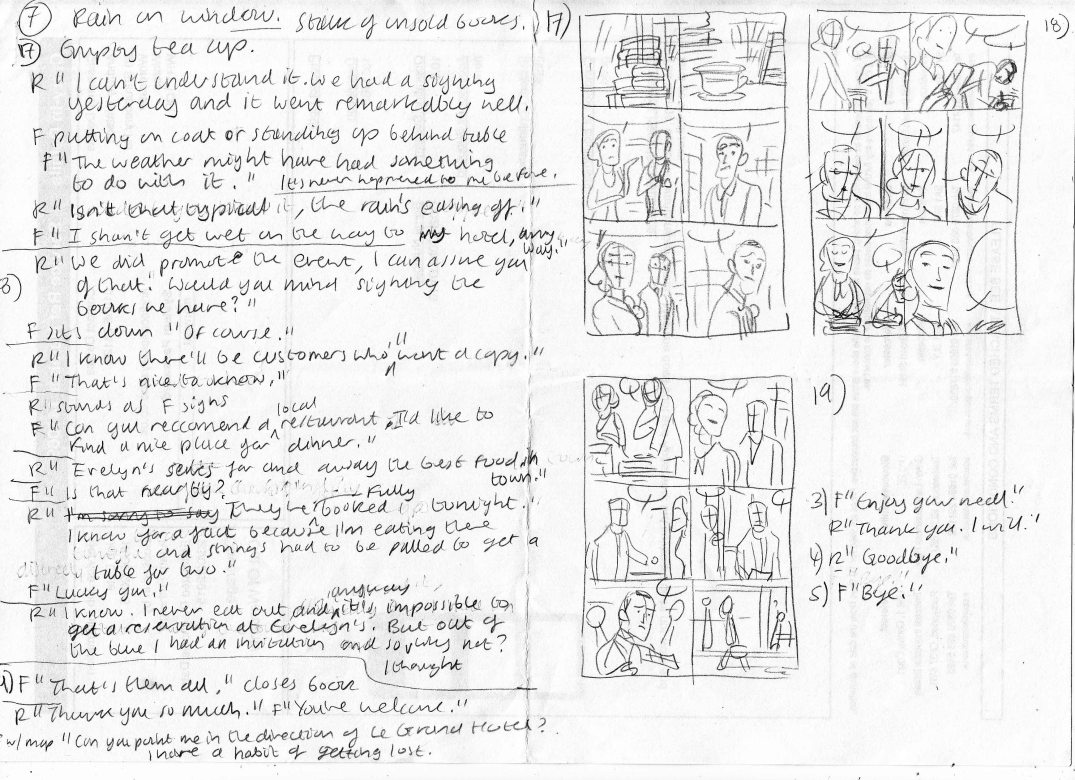 7 Rain on window. Stack of unsold books.
17) Empty tea cup.
R "I can't understand it. We had a signing
yesterday and it went remarkably well.
F putting on coat or standing up behind table
F "The weather might have had something
to do with it." It's never happened to me before.
R "Isn't that typical, the rain's easing off."
F "I shan't get wet on the way to my hotel, anyway."
R "We did promote the event, I can assure you
of that. Would you mind signing the
books we have?"
F sits down "Of course."
R "I know there'll be customers who'll want a copy."
F "That's nice to know."
R stands as F signs
F "Can you reccomend a local restaurant. I'd like to
find a nice place for dinner."
R "Evelyn's serves far and away the best food in
town."
F "Is that nearby?
R "I'm sorry to say They're fully booked up tonight."
I know for a fact because I'm eating there
and strings had to be pulled to get a
table for two."
F "Lucky you."
R "I know. I never eat out and anyway it's impossible to
get a reservation at Evelyn's. But out of
the blue I had an invitation and so why not?
I thought
F "That's them all," closes book
R "Thank you so much." F "You're welcome."
w/map "Can you point me in the direction of Le Grand Hotel?
I have a habit of getting lost.
17)
18)
19)
3) F "Enjoy your meal."
R "Thank you. I will."
4) R "Goodbye."
5) F "Bye."